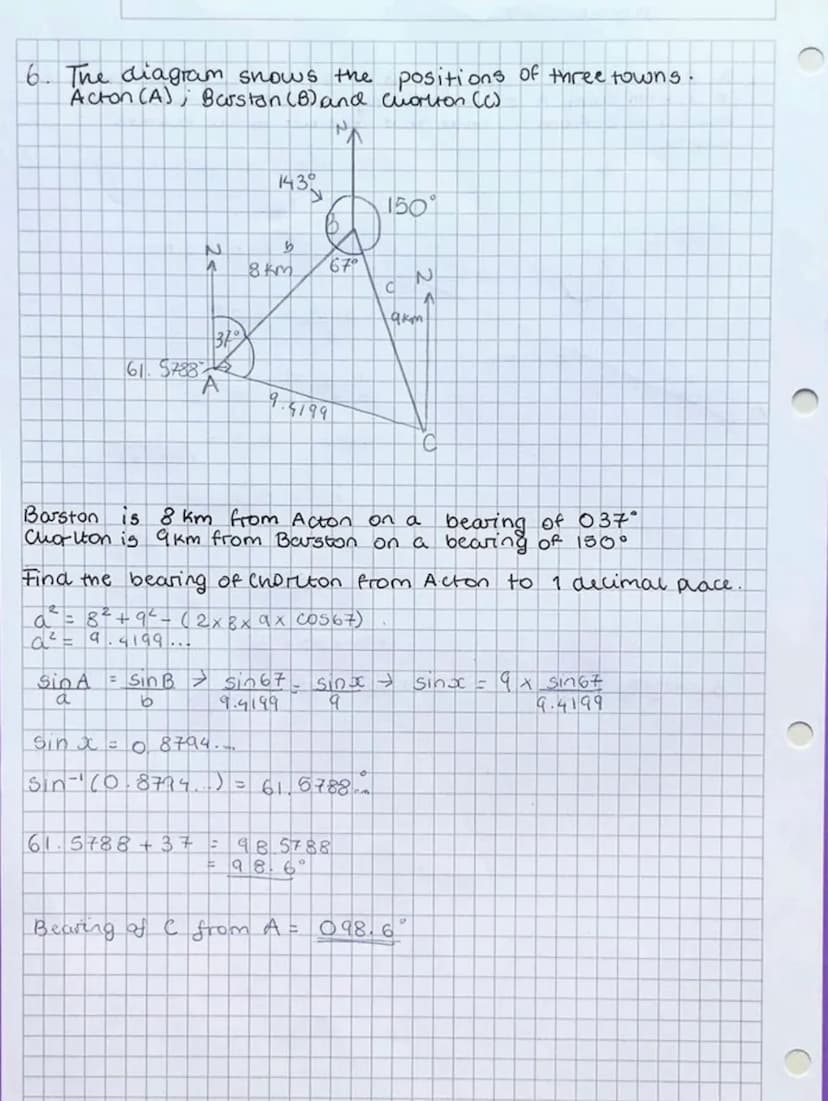 6. The diagram shows the positions of three towns.
Acton (A), Barston (B) and Chorlton (C)
N
143°
150°
B
N
b
8 km
67°
c
N
9km
37°
61.5788
A
9.4199
C
Barston is 8 km from Acton on a bearing of 037°
Chorlton is 9km from Barston on a bearing of 150°
Find the bearing of Chorlton from Acton to 1 decimal place.
a² = 8² + 9² - (2 x 8 x 9 x cos67)
a² = 9.4199...
sin A / a = sin B / b → sin67 / 9.4199 = sin x / 9 → sin x = 9 x sin67 / 9.4199
sin x = 0.8794...
sin⁻¹ (0.8794...) = 61.5788...°
61.5788 + 37 = 98.5788
= 98.6°
Bearing of C from A = 098.6°